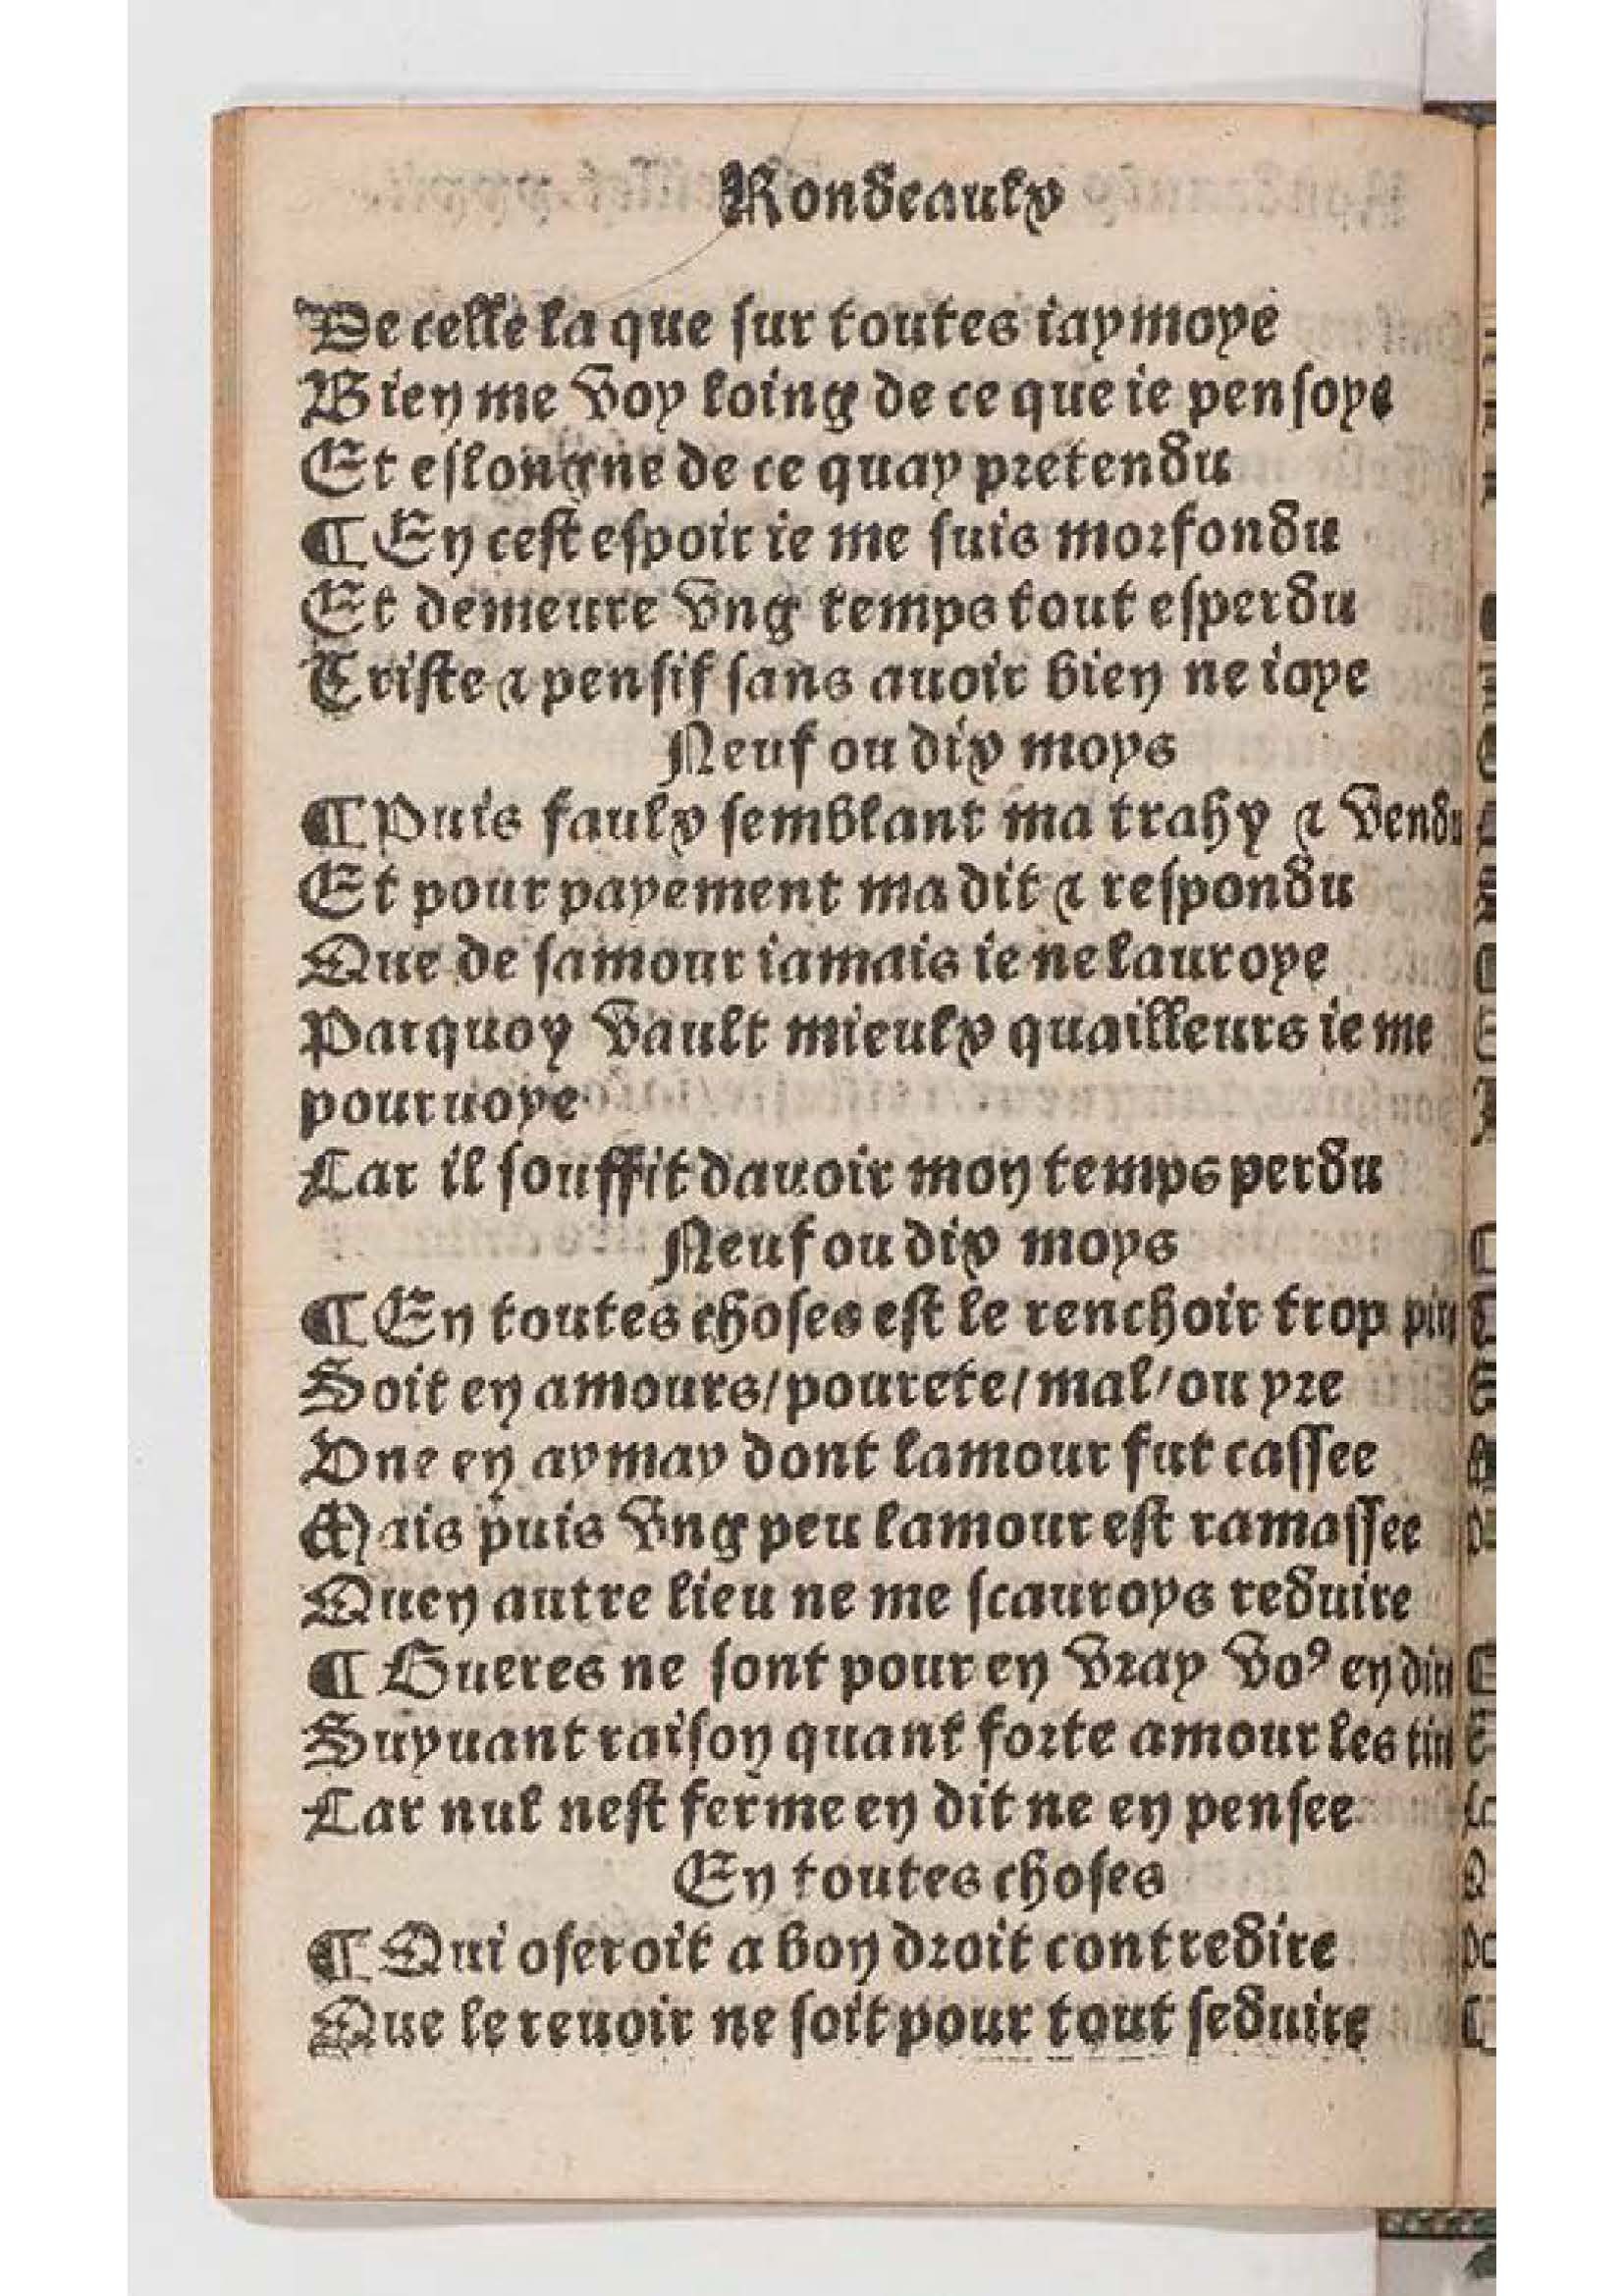 Rondeaulx
De celle la que sur toutes iaymoye
Bien me voy loing de ce que ie pensoye
Et eslongne de ce quay pretendu
¶ En cest espoir ie me suis morfondu
Et demeure vng temps tout esperdu
Triste & pensif sans auoir bien ne ioye
Neuf ou dix moys
¶ Puis faulx semblant ma trahy & vendu
Et pour payement ma dit & respondu
Que de samour iamais ie ne lauroye
Parquoy vault mieulx quailleurs ie me
pouruoye
Car il souffit dauoir mon temps perdu
Neuf ou dix moys
¶ En toutes choses est le renchoir trop
Soit en amours/pourete/mal/ou yre
Vne en aymay dont lamour fut cassee
Mais puis vng peu lamour est ramassee
Quen autre lieu ne me scauroys reduire
¶ Gueres ne sont pour en vray voꝰ en
Suyuant raison quant forte amour les
Car nul nest ferme en dit ne en pensee
En toutes choses
¶ Qui oseroit a bon droit contredire
Que le reuoir ne soit pour tout seduire